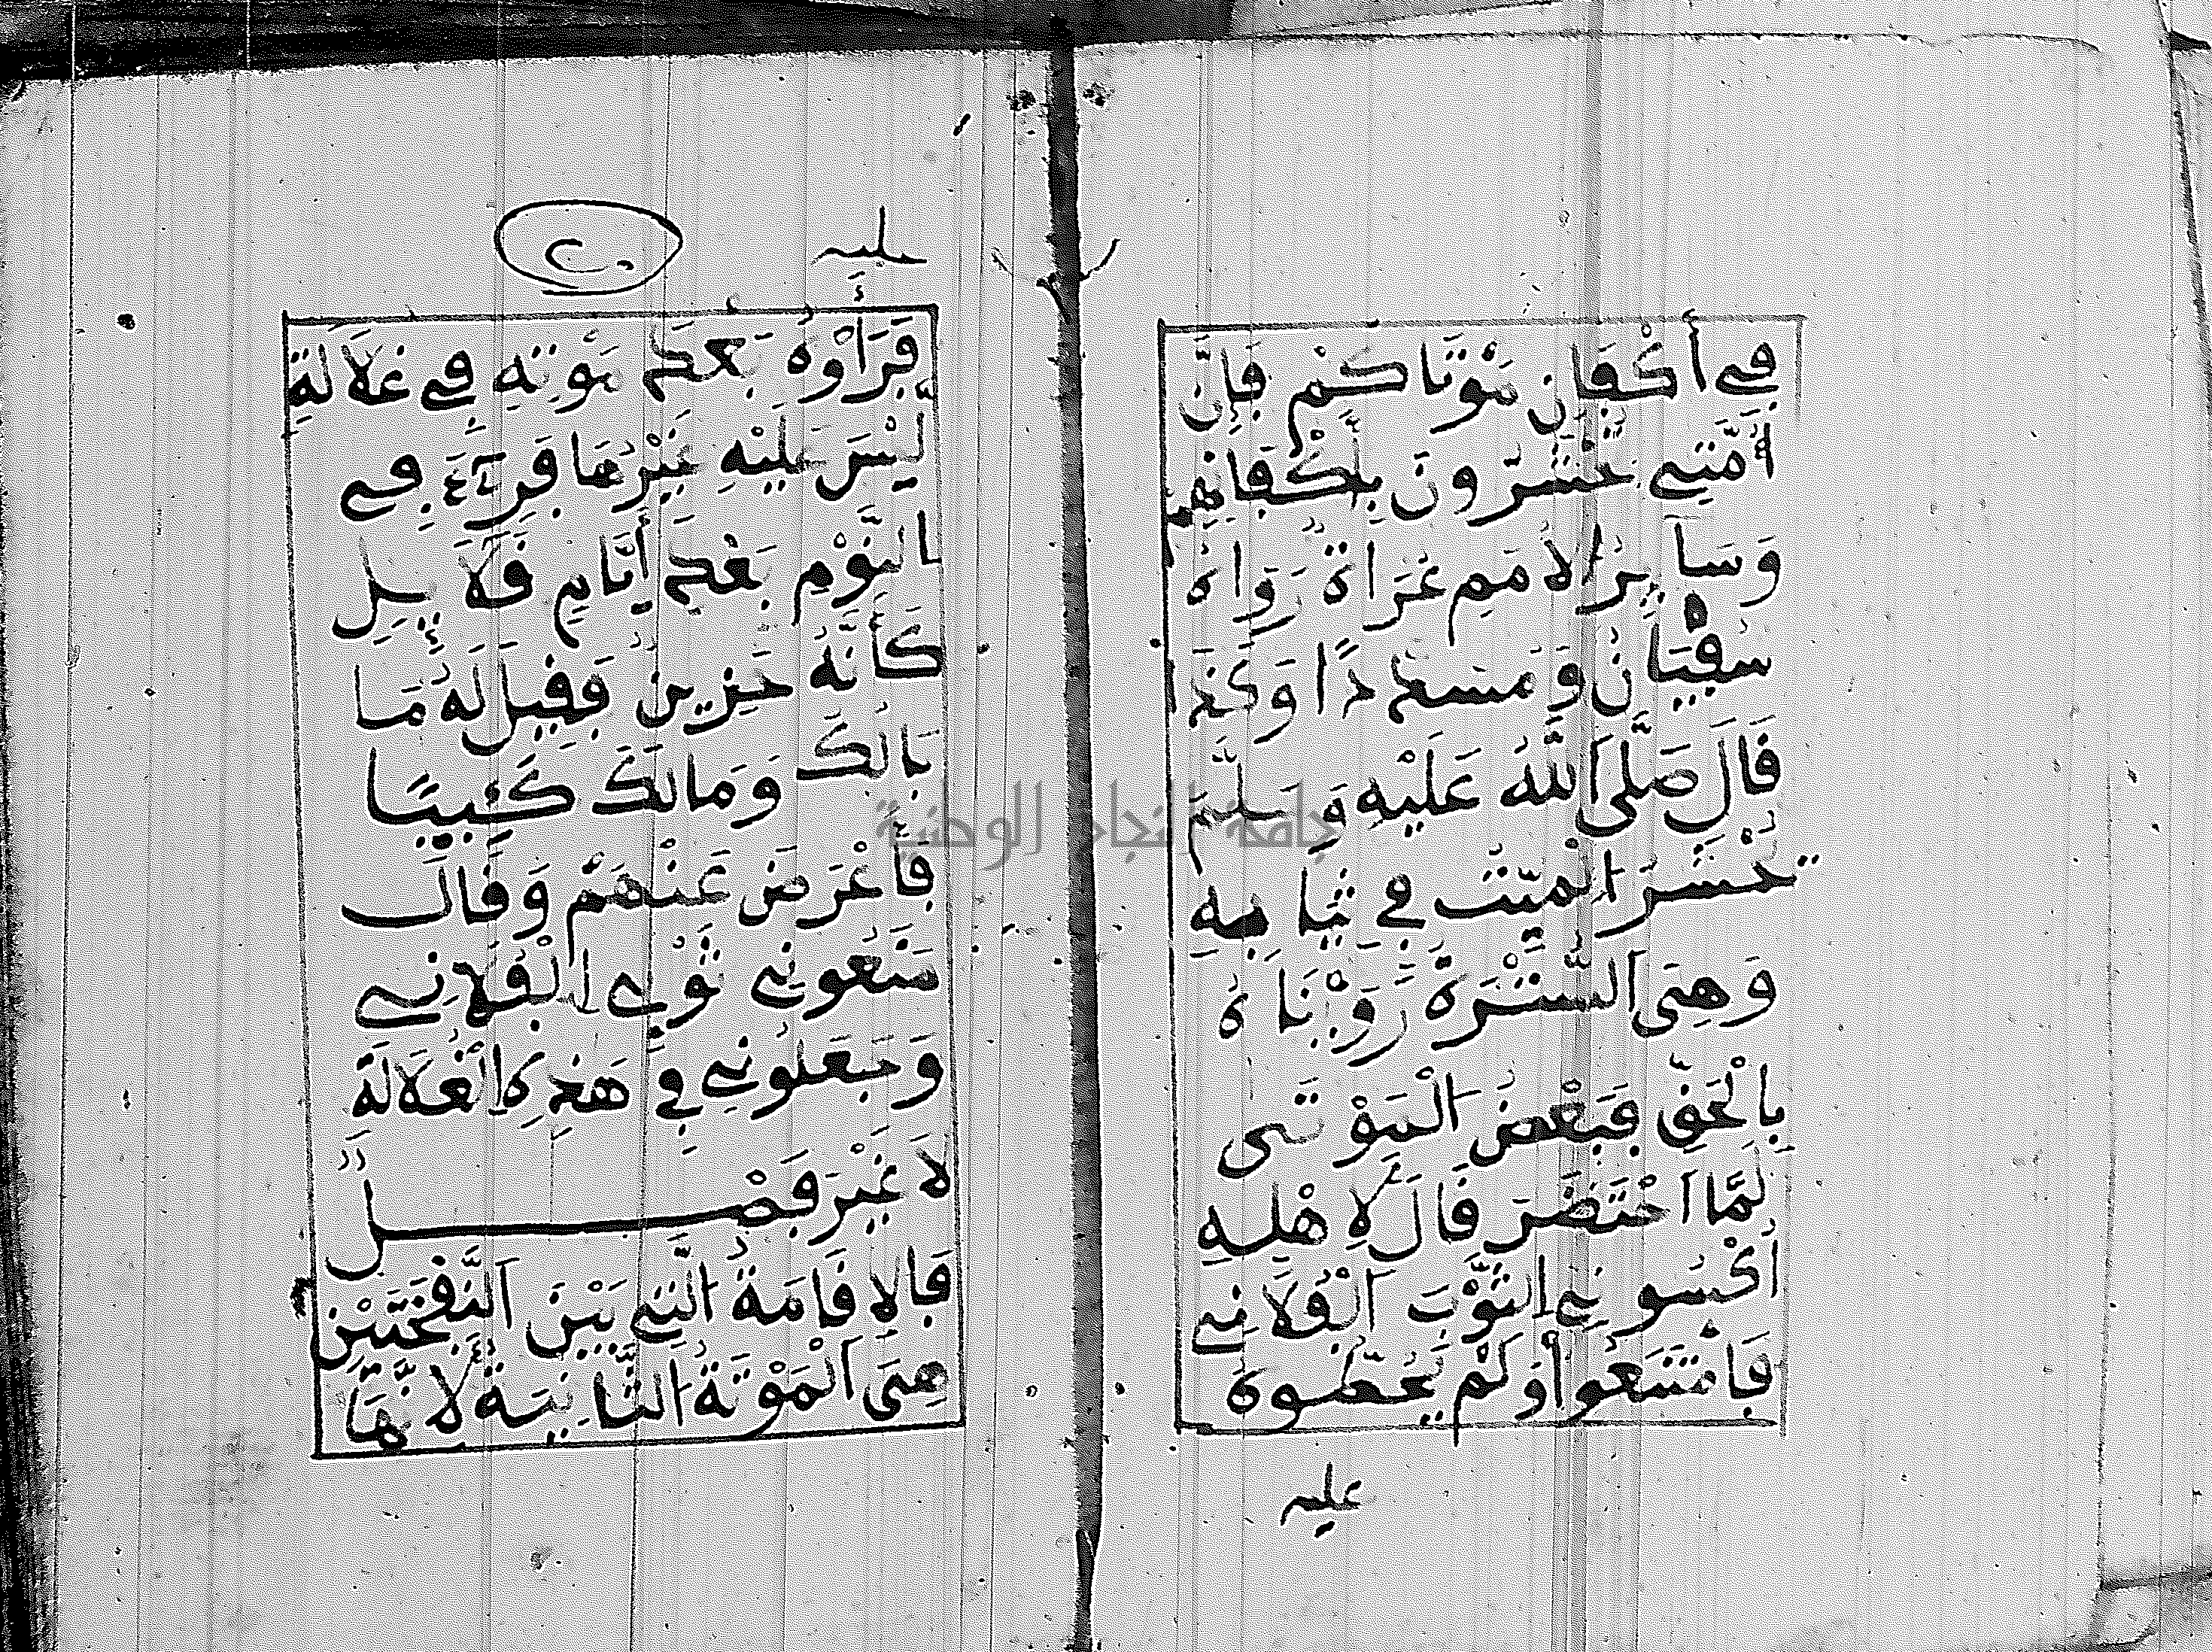 فِي أَكْفَانِ مَوْتَاكُمْ فَإِنَّ
أُمَّتِي تُحْشَرُونَ بِأَكْفَانِهِمْ
وَسَايِرُ الأُمَمِ عُرَاةٌ رَوَاهُ
سُفْيَانُ وَمُسْنَدًا وَكَذَا
قَالَ صَلَّى اللَّهُ عَلَيْهِ وَسَلَّمَ
تُحْشَرُ الْمَيِّتُ فِي ثِيَابِهِ
وَهِيَ السُّتْرَةُ رَوَيْنَاهُ
بِالْحَقِّ فَبَعْضُ الْمَوْتَى
لَمَّا احْتَضَرَ قَالَ لِأَهْلِهِ
اكْسُونِي الثَّوْبَ الْفُلَانِي
فَامْتَنَعُوا وَلَمْ يُعْطُوهُ
عليه
عليه
٢٠
فَرَأَوْهُ بَعْدَ مَوْتِهِ فِي غُلَالَةٍ
لَيْسَ عَلَيْهِ غَيْرُهَا فَرِءَىَ فِي
النَّوْمِ بَعْدَ أَيَّامٍ قَلَايِلِ
كَأَنَّهُ حَزِينٌ فَقِيلَ لَهُ مَا
بَالُكَ وَمَالَكَ كَئِيبًا
فَأَعْرَضَ عَنْهُمْ وَقَالَ
مَنَعُونِي ثَوْبِي الْفُلَانِي
وَجَعَلُونِي فِي هَذِهِ الْغُلَالَةِ
لَا غَيْرَ فَصْل
فَالإِقَامَةُ الَّتِي بَيْنَ النَّفْخَتَيْنِ
هِيَ الْمَوْتَةُ الثَّانِيَةُ لأَنَّهَا
جامعة النجاح الوطنية